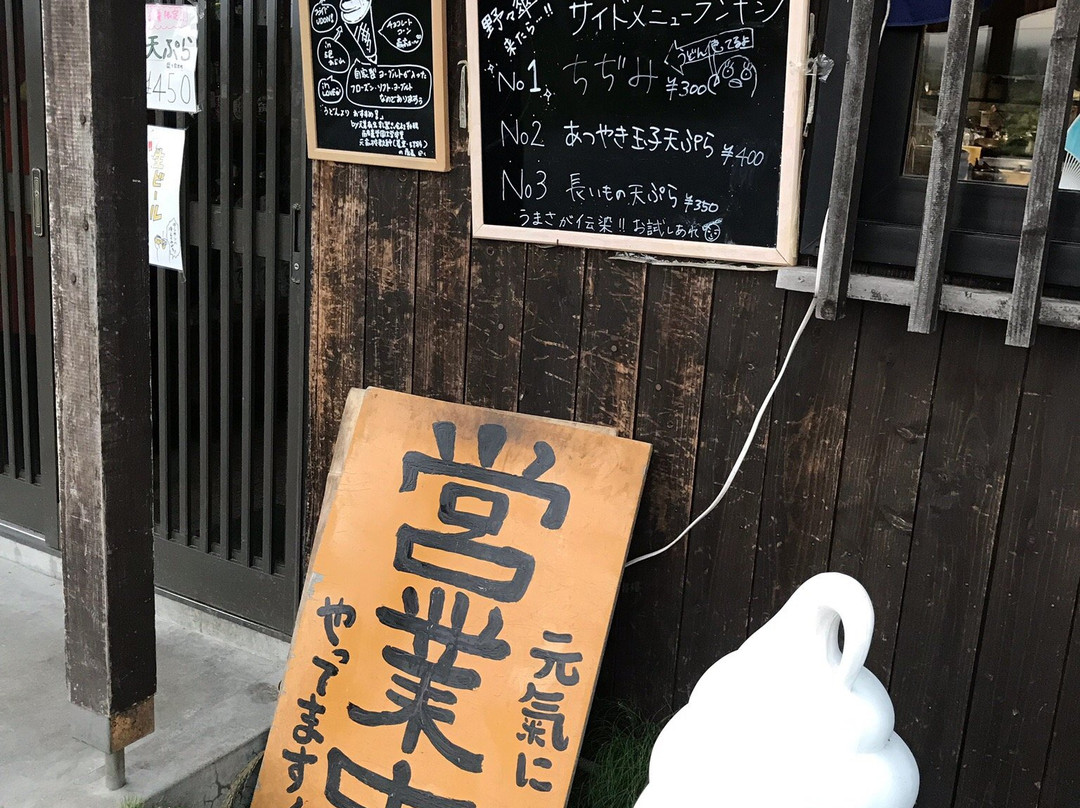 天ぷら
¥450
生ビール
UDON!
チョコレート
コーン
in
LOVE♡
自家製ヨーグルトが入った
フローズン・ソフト・ヨーグルト
なのであります
「うどんより おすすめ!!」
野々傘
来たら…!!
サイドメニューランキン
うどん屋でるよ
No1 ちぢみ ¥300
No2 あつやき玉子天ぷら ¥400
No3 長いもの天ぷら ¥350
うまさが伝染!! お試しあれ
営業中
元氣に
やってます